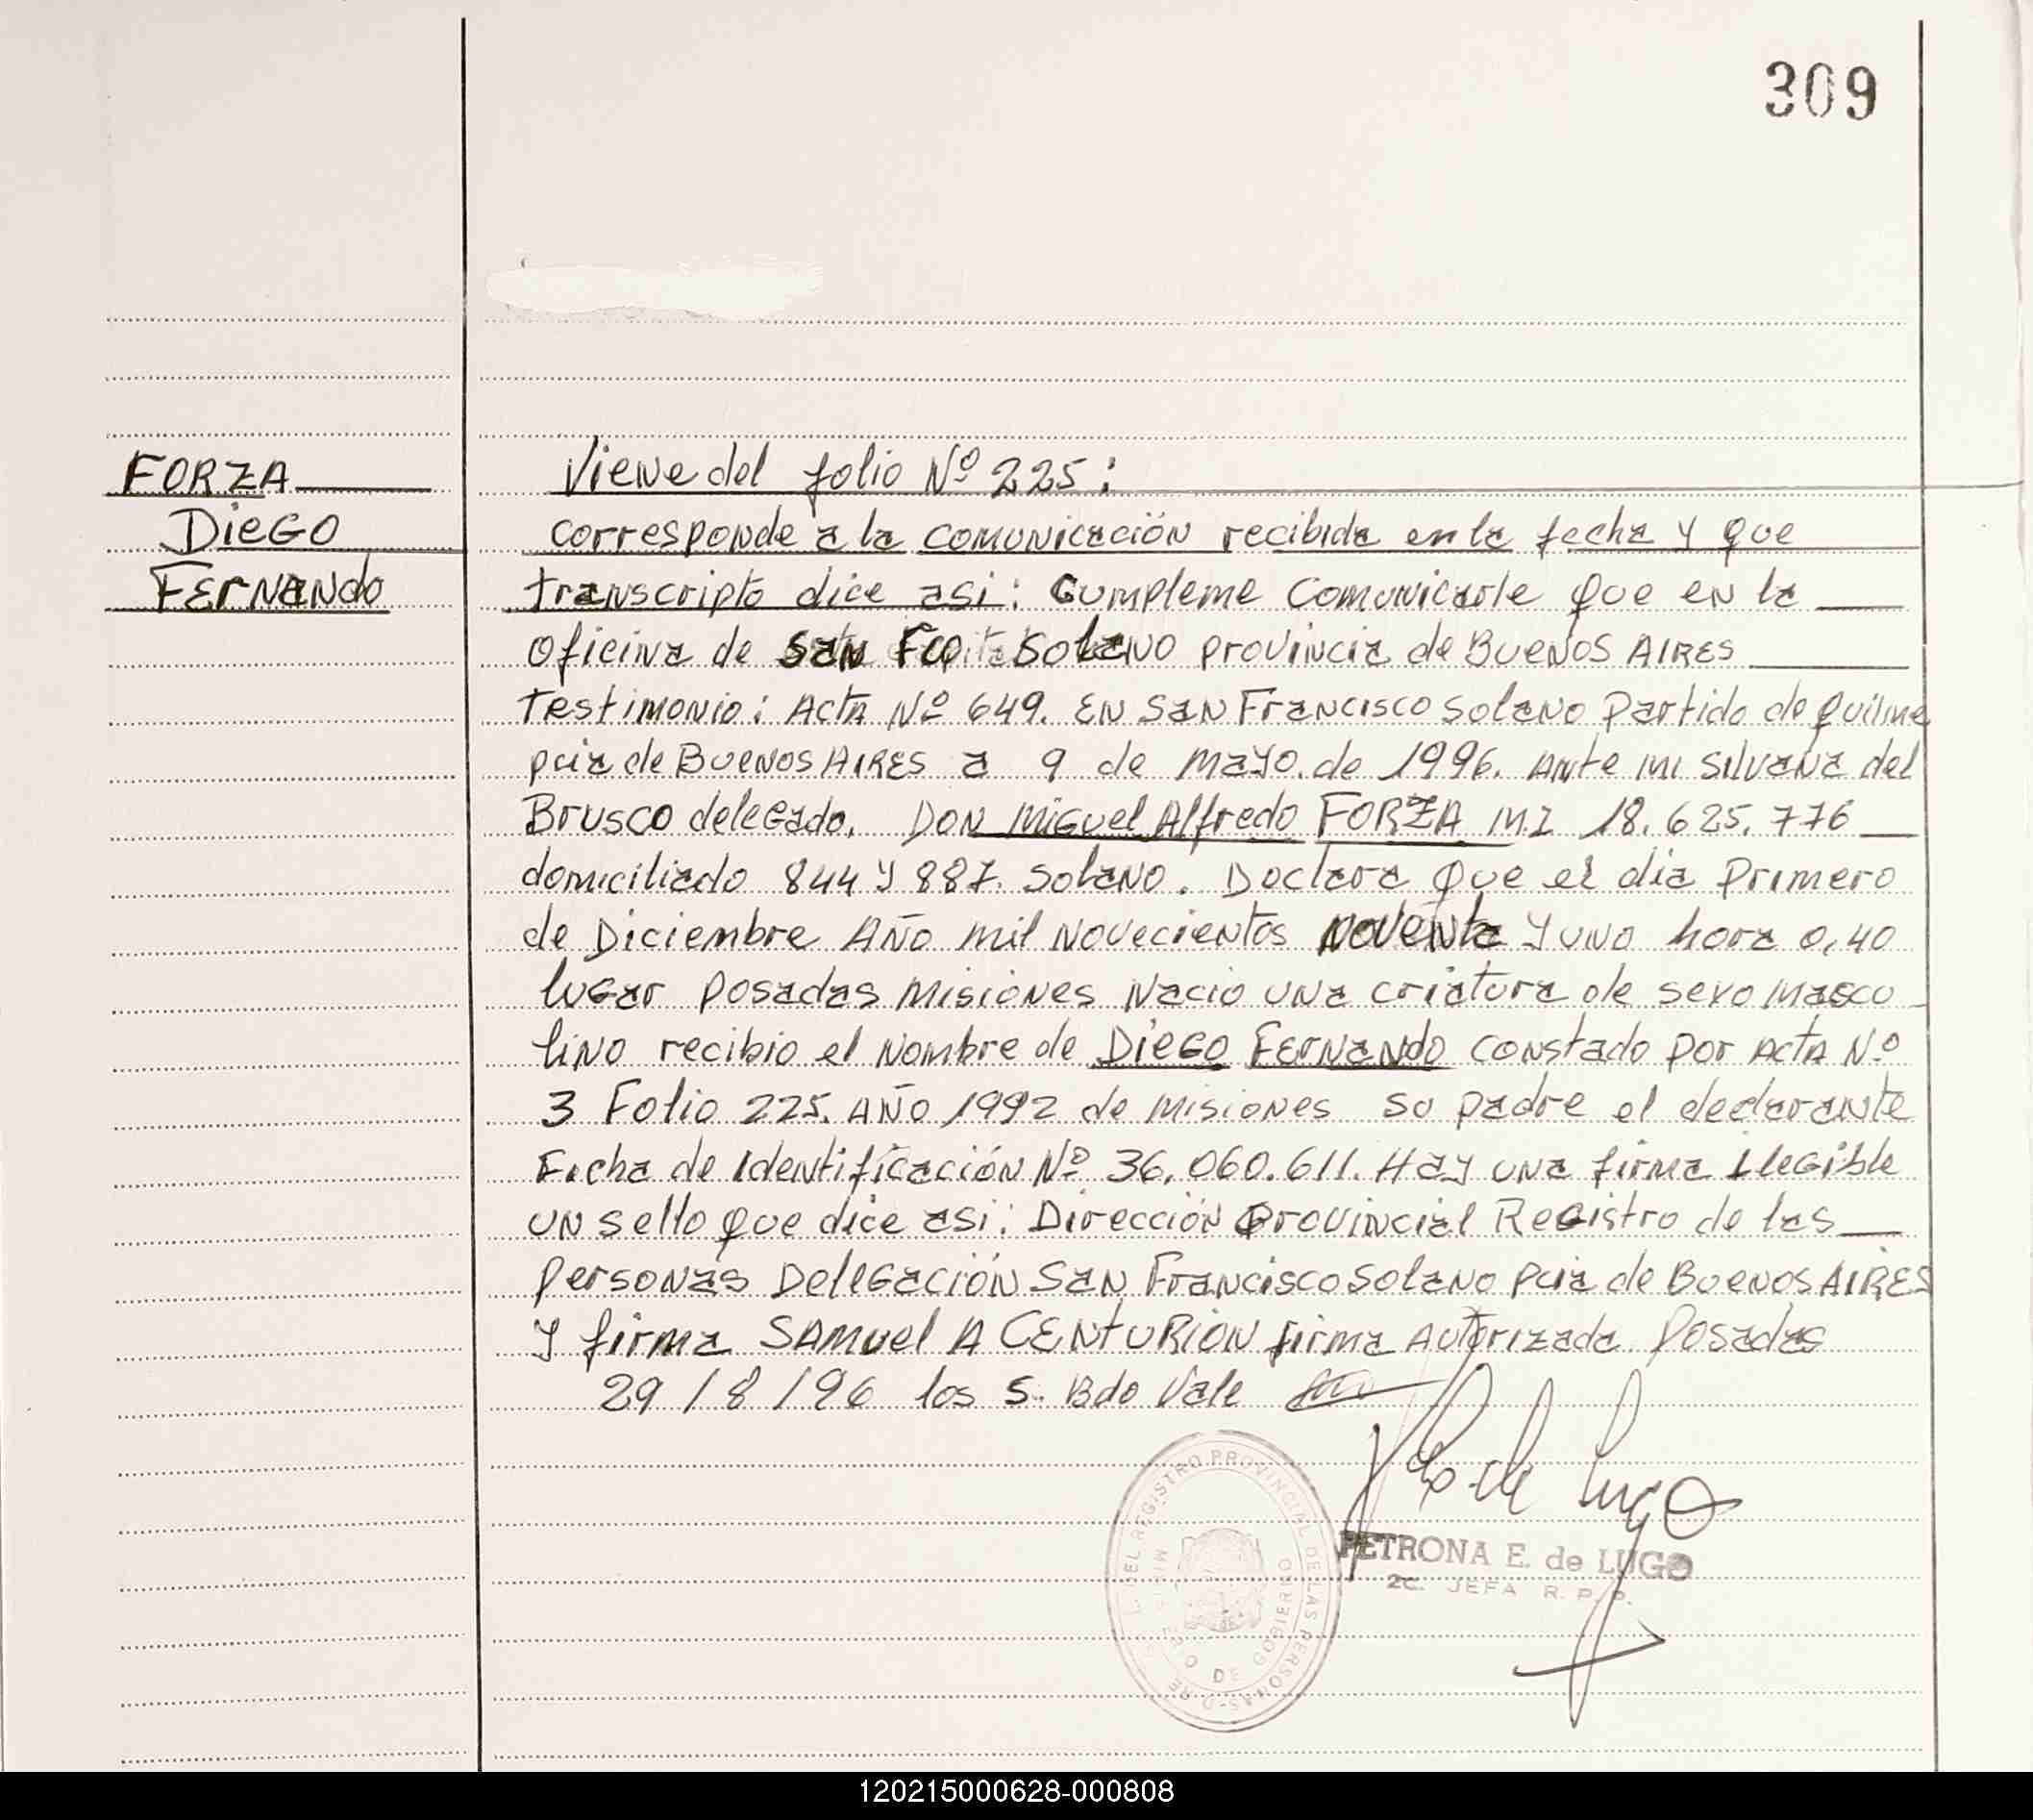 309
FORZA
DIEGO
FERNANDO
Viene del folio Nº 225:
corresponde a la comunicación recibida en la fecha y que
transcripto dice asi: Cumpleme Comunicarle que en la
Oficina de San Fco Solano provincia de Buenos AIRES
Testimonio: Acta Nº 649. En San Francisco Solano Partido de Quilme
pcia de Buenos AIRES a 9 de mayo. de 1996. Ante mi Silvana del
Brusco delegado. Don Miguel Alfredo FORZA M.I 18.625.776
domiciliado 844 y 887. Solano. Declara que el dia primero
de Diciembre Año mil novecientos noventa y uno hora 0,40
lugar Posadas Misiones Nacio una criatura de sexo mascu
lino recibio el nombre de Diego Fernando constado por Acta Nº
3 Folio 225. Año 1992 de misiones su padre el declarante
Ficha de Identificación Nº 36.060.611. Hay una firma ilegible
un sello que dice asi: Dirección Provincial Registro de las
personas Delegación San Francisco Solano Pcia de Buenos AIRES
y firma SAMUEL A CENTURION firma Autorizada Posadas
29/8/96 los S. Bdo Vale
PETRONA E. de LUGO
2C. JEFA R. P. P.
DEL REGISTRO PROVINCIAL DE LAS PERSONAS
DE GOBIERNO
120215000628-000808